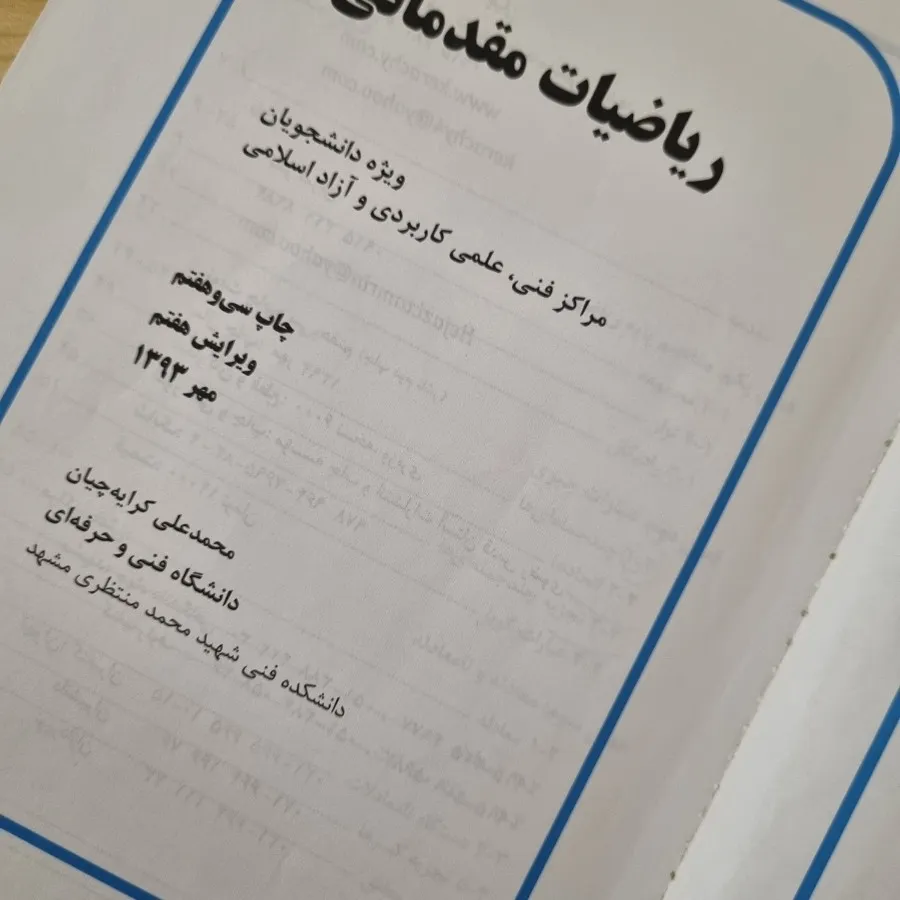 ریاضیات مقدماتی
ویژه دانشجویان
مراکز فنی، علمی کاربردی و آزاد اسلامی
چاپ سی‌و‌هفتم
ویرایش هفتم
مهر ۱۳۹۳
محمدعلی کرایه‌چیان
دانشگاه فنی و حرفه‌ای
دانشکده فنی شهید محمد منتظری مشهد